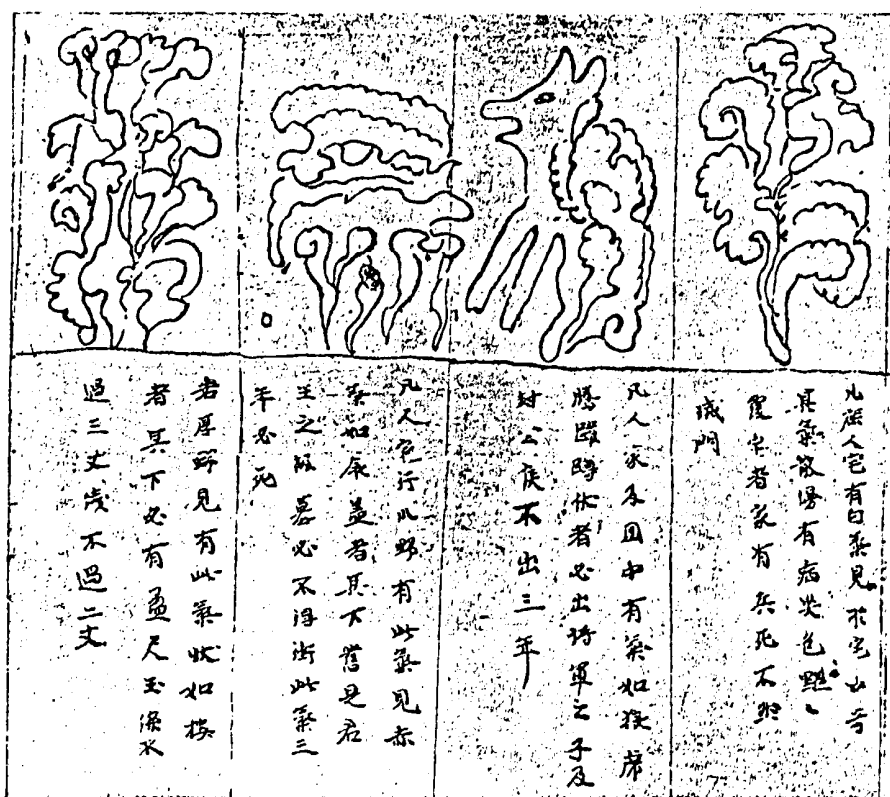 凡在人宅有白氣見於宅出奇
其氣散漫有病災色黯々
覆宅者家有兵死不然
滅門
凡人家及田中有氣如狼虎
騰蹲伏者必出將軍之子及
封公侯不出三年
凡人宅行此野有此氣見赤
氣如底蓋者其下舊是君
王之墓必不得衝此氣三
年必死
若厚野見有此氣狀如樓
者其下必有盈尺玉深水
過三丈淺不過二丈